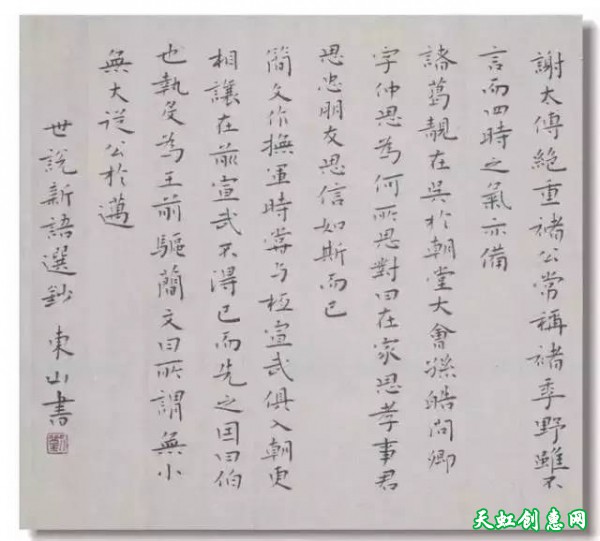 謝太傅絶重褚公常稱褚季野雖不
言而四時之氣亦備
諸葛靚在吳於朝堂大會孫皓問卿
字仲思為何所思對曰在家思孝事君
思忠朋友思信如斯而已
簡文作撫軍時嘗与桓宣武俱入朝更
相讓在前宣武不得已而先之因曰伯
也執殳為王前驅簡文曰所謂無小
無大從公於邁
世説新語選鈔 東山書
天虹创惠网